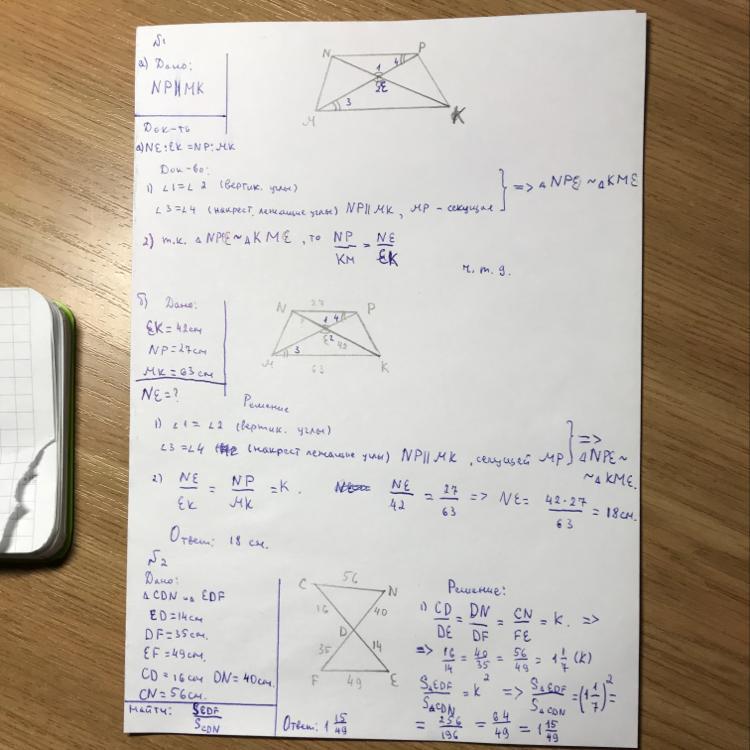 №1
а) Дано:
NP∥MK
N P 4 1 2 E 3 M K
Док-ть
а) NE:EK = NP:MK
Док-во:
1) ∠1 = ∠2 (вертик. углы)
∠3 = ∠4 (накрест лежащие углы) NP∥MK, MP - секущая
=> △NPE ~ △KME
2) т.к. △NPE ~ △KME, то NP/KM = NE/EK
ч.т.д.
б) Дано:
EK = 42см
NP = 27см
MK = 63 см
NE = ?
N 27 P 1 4 E 2 42 3 M 63 K
Решение
1) ∠1 = ∠2 (вертик. углы)
∠3 = ∠4 (накрест лежащие углы) NP∥MK, секущей MP
=> △NPE ~
~ △KME.
2) NE/EK = NP/MK = K. NE/42 = 27/63 => NE = 42·27/63 = 18см.
Ответ: 18 см.
№2
Дано:
△CDN и EDF
ED = 14см
DF = 35см.
EF = 49см.
CD = 16см DN = 40см.
CN = 56см.
Найти: SEDF/SCDN
C 56 N 16 40 D 35 14 F 49 E
Решение:
1) CD/DE = DN/DF = CN/FE = K. =>
=> 16/14 = 40/35 = 56/49 = 1 1/7 (K)
S△EDF/S△CDN = K² => S△EDF/S△CDN = (1 1/7)² =
= 256/196 = 64/49 = 1 15/49
Ответ: 1 15/49